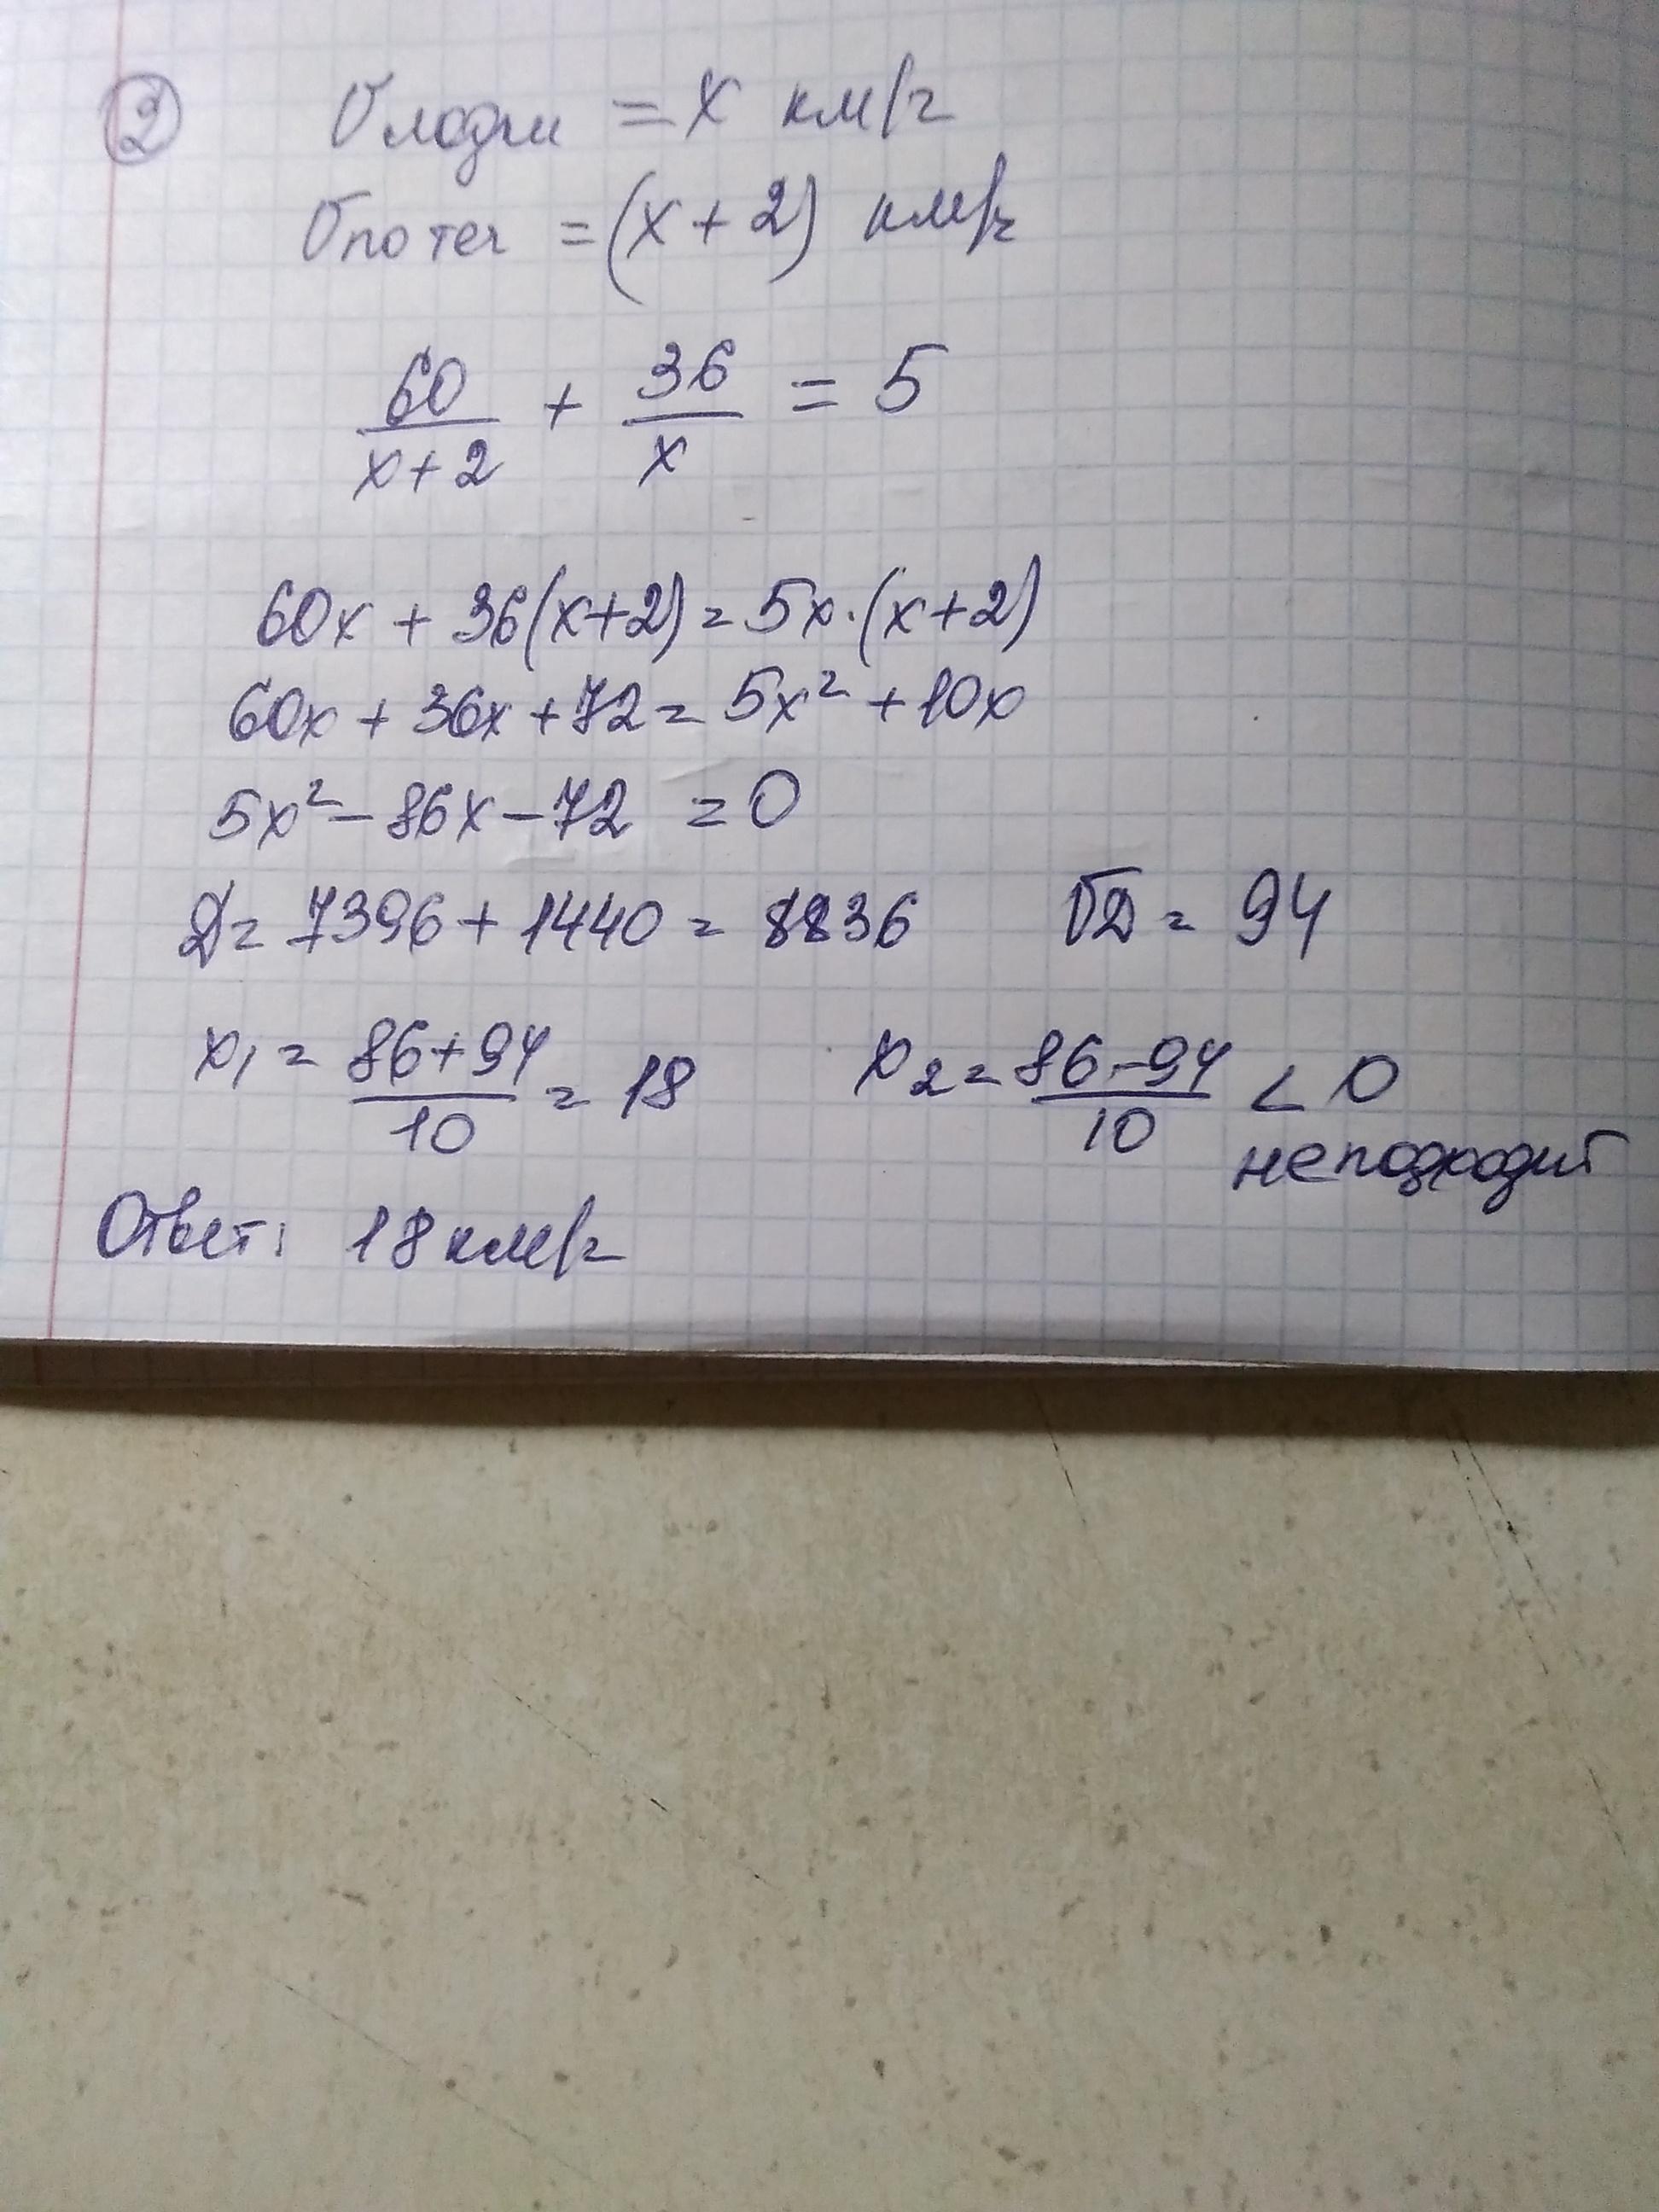 2 Vлодки = x км/ч
Vпо теч = (x + 2) км/ч
60/(x+2) + 36/x = 5
60x + 36(x+2) = 5x·(x+2)
60x + 36x + 72 = 5x² + 10x
5x² - 86x - 72 = 0
D = 7396 + 1440 = 8836 √D = 94
x₁ = (86+94)/10 = 18 x₂ = (86-94)/10 < 0
не подходит
Ответ: 18 км/ч